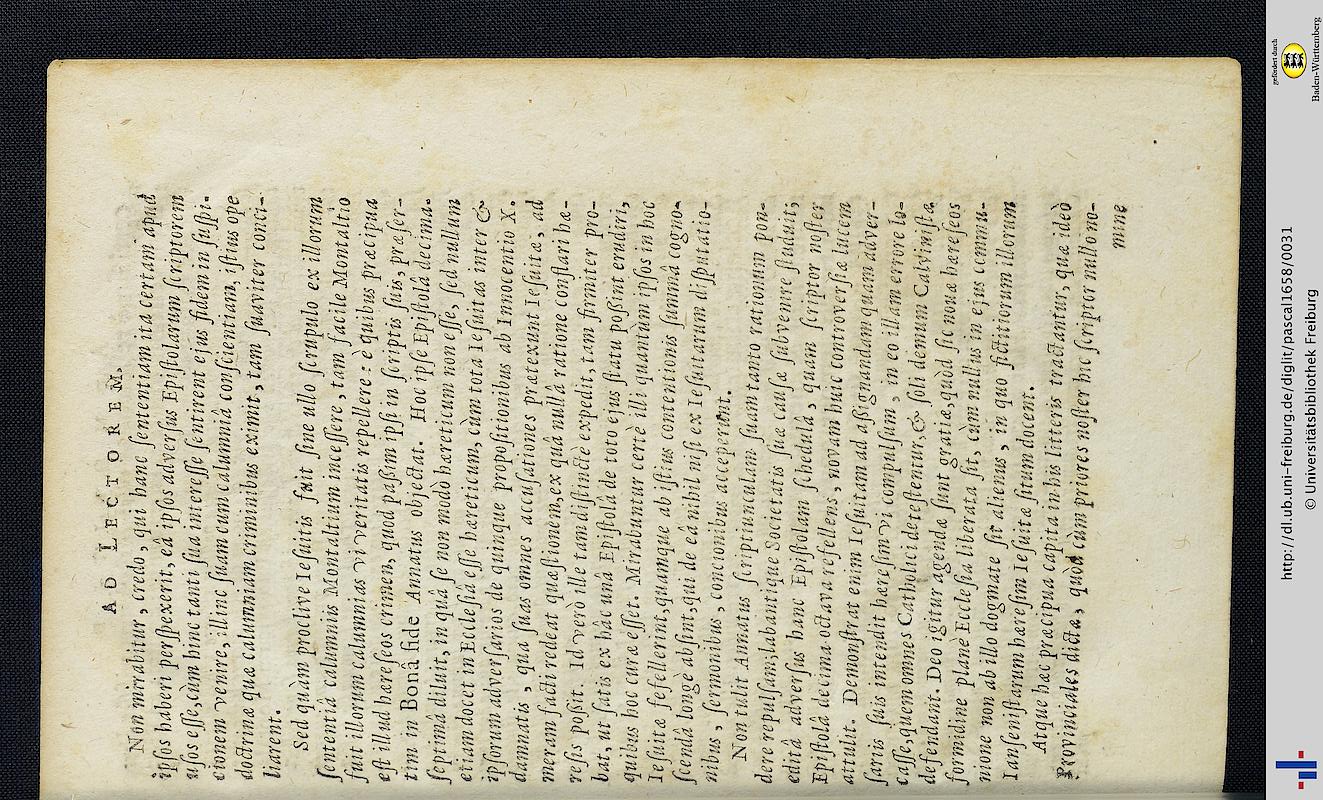 AD LECTOREM.
Non mirabitur, credo, qui hanc ſententiam ita certam apud
ipſos haberi perſpexerit, eâ ipſos adverſus Epiſtolarum ſcriptorem
uſos eſſe, cùm hinc tanti ſua intereſſe ſentirent ejus fidem in ſuſpi-
cionem venire, illinc ſuam cum calumniâ conſcientiam, iſtius ope
doctrinæ quæ calumniam criminibus eximit, tam ſuaviter conci-
liarent.
Sed quàm proclive Ieſuitis fuit ſine ullo ſcrupulo ex illorum
ſententiâ calumniis Montaltium inceſſere, tam facile Montaltio
fuit illorum calumnias vi veritatis repellere: è quibus præcipua
eſt illud hæreſeos crimen, quod paſſim ipſi in ſcriptis ſuis, præſer-
tim in Bonâ fide Annatus objectat. Hoc ipſe Epiſtolâ decima-
ſeptimâ diluit, in quâ ſe non modò hæreticum non eſſe, ſed nullum
etiam docet in Eccleſiâ eſſe hæreticum, cùm tota Ieſuitas inter &
ipſorum adverſarios de quinque propoſitionibus ab Innocentio X.
damnatis, quâ ſuas omnes accuſationes prætexunt Ieſuitæ, ad
meram facti redeat quæſtionem, ex quâ nullâ ratione conflari hæ-
reſis poſſit. Id verò ille tam diſtinctè expedit, tam firmiter pro-
bat, ut ſatis ex hâc unâ Epiſtolâ de toto ejus ſtatu poſſint erudiri,
quibus hoc curæ eſſet. Mirabuntur certè illi quantùm ipſos in hoc
Ieſuitæ fefellerint, quamque ab iſtius contentionis ſummâ cogno-
ſcendâ longè abſint, qui de eâ nihil niſi ex Ieſuitarum diſputatio-
nibus, ſermonibus, concionibus acceperunt.
Non tulit Annatus ſcriptiunculam ſuam tanto rationum pon-
dere repulſam; labantique Societatis ſuæ cauſæ ſubvenire ſtuduit,
editâ adverſus hanc Epiſtolam ſchedulâ, quam ſcriptor noſter
Epiſtolâ decima-octava refellens, novam huic controverſiæ lucem
attulit. Demonſtrat enim Ieſuitam ad aſſignandam quam adver-
ſariis ſuis intendit hæreſim vi compulſum, in eo illam errore lo-
caſſe, quem omnes Catholici deteſtentur, & ſoli demum Calviniſtæ
defendant. Deo igitur agendæ ſunt gratiæ, quòd ſic novæ hæreſeos
formidine planè Eccleſia liberata ſit, cùm nullus in ejus commu-
nione non ab illo dogmate ſit alienus, in quo fictitiorum illorum
Ianſeniſtarum hæreſim Ieſuitæ ſitum docent.
Atque hæc præcipua capita in his litteris tractantur, quæ ideò
Provinciales dictæ, quòd cum priores noſter hic ſcriptor nullo no-
mine
gefördert durch
Baden-Württemberg
http://dl.ub.uni-freiburg.de/diglit/pascal1658/0031
© Universitätsbibliothek Freiburg